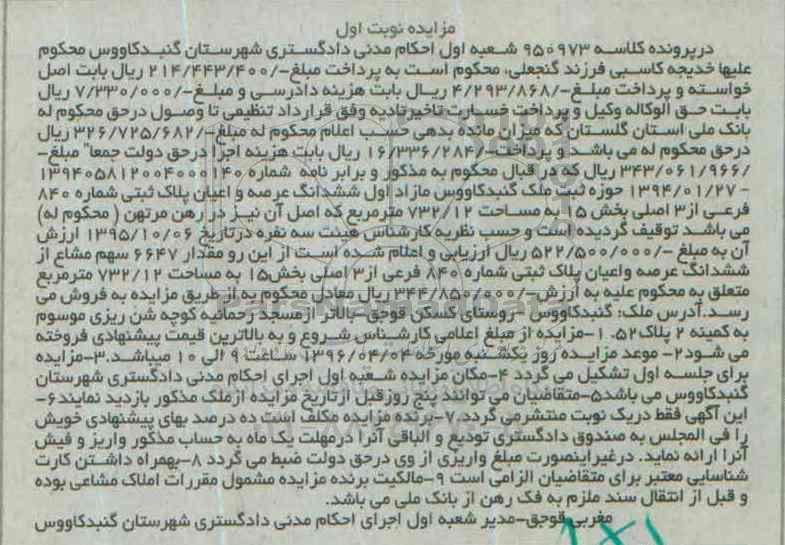 مزایده نوبت اول
درپرونده کلاسه ۹۵۰۹۷۳ شعبه اول احکام مدنی دادگستری شهرستان گنبدکاووس محکوم
علیها خدیجه کاسبی فرزند گنجعلی، محکوم است به پرداخت مبلغ-/۲۱۴/۴۴۳/۴۰۰ ریال بابت اصل
خواسته و پرداخت مبلغ-/۴/۲۹۳/۸۶۸ ریال بابت هزینه دادرسی و مبلغ-/۷/۳۳۰/۰۰۰ ریال
بابت حق الوکاله وکیل و پرداخت خسارت تاخیرتادیه وفق قرارداد تنظیمی تا وصول درحق محکوم له
بانک ملی استان گلستان که میزان مانده بدهی حسب اعلام محکوم له مبلغ-/۳۲۶/۷۲۵/۶۸۲ ریال
درحق محکوم له می باشد و پرداخت-/۱۶/۳۳۶/۲۸۴ ریال بابت هزینه اجرا درحق دولت جمعا" مبلغ-
/۳۴۳/۰۶۱/۹۶۶ ریال که در قبال محکوم به مذکور و برابر نامه شماره ۱۳۹۴۰۵۸۱۲۰۰۴۰۰۰۱۴۰
- ۱۳۹۴/۰۱/۲۷ حوزه ثبت ملک گنبدکاووس مازاد اول ششدانگ عرصه و اعیان پلاک ثبتی شماره ۸۴۰
فرعی از۳ اصلی بخش ۱۵ به مساحت ۷۳۲/۱۲ مترمربع که اصل آن نیز در رهن مرتهن ( محکوم له)
می باشد توقیف گردیده است و حسب نظریه کارشناس هیئت سه نفره درتاریخ ۱۳۹۵/۱۰/۰۶ ارزش
آن به مبلغ -/۵۲۲/۵۰۰/۰۰۰ ریال ارزیابی و اعلام شده است از این رو مقدار ۶۶۴۷ سهم مشاع از
ششدانگ عرصه واعیان پلاک ثبتی شماره ۸۴۰ فرعی از۳ اصلی بخش۱۵ به مساحت ۷۳۲/۱۲ مترمربع
متعلق به محکوم علیه به ارزش-/۳۴۴/۸۵۰/۰۰۰ ریال معادل محکوم به از طریق مزایده به فروش می
رسد.آدرس ملک: گنبدکاووس – روستای کسکن قوجق-بالاتر ازمسجد رحمانیه کوچه شن ریزی موسوم
به کمینه ۲ پلاک۵۲. ۱-مزایده از مبلغ اعلامی کارشناس شروع و به بالاترین قیمت پیشنهادی فروخته
می شود۲- موعد مزایده روز یکشنبه مورخه ۱۳۹۶/۰۴/۰۴ ساعت ۹ الی ۱۰ میباشد.۳-مزایده
برای جلسه اول تشکیل می گردد ۴-مکان مزایده شعبه اول اجرای احکام مدنی دادگستری شهرستان
گنبدکاووس می باشد۵-متقاضیان می توانند پنج روزقبل ازتاریخ مزایده ازملک مذکور بازدید نمایند۶-
این آگهی فقط دریک نوبت منتشرمی گردد.۷-برنده مزایده مکلف است ده درصد بهای پیشنهادی خویش
را فی المجلس به صندوق دادگستری تودیع و الباقی آنرا درمهلت یک ماه به حساب مذکور واریز و فیش
آنرا ارائه نماید. درغیراینصورت مبلغ واریزی از وی درحق دولت ضبط می گردد ۸-بهمراه داشتن کارت
شناسایی معتبر برای متقاضیان الزامی است ۹-مالکیت برنده مزایده مشمول مقررات املاک مشاعی بوده
و قبل از انتقال سند ملزم به فک رهن از بانک ملی می باشد.
مغربی قوجق-مدیر شعبه اول اجرای احکام مدنی دادگستری شهرستان گنبدکاووس